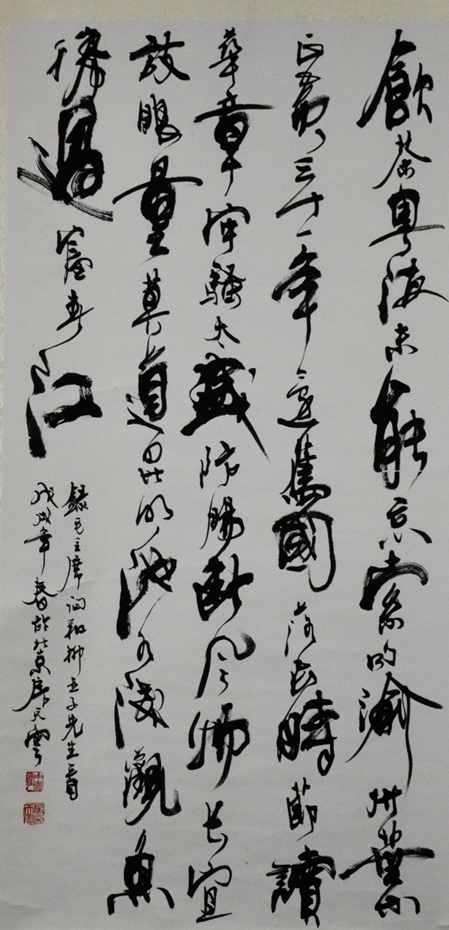 飲茶粵海未能忘索句渝州葉
正黃三十一年還舊國落花時節讀
華章牢騷太盛防腸斷風物長宜
放眼量莫道昆明池水淺觀魚
勝過富春江
錄毛主席詞和柳亞子先生一首
戊戌年春於北京